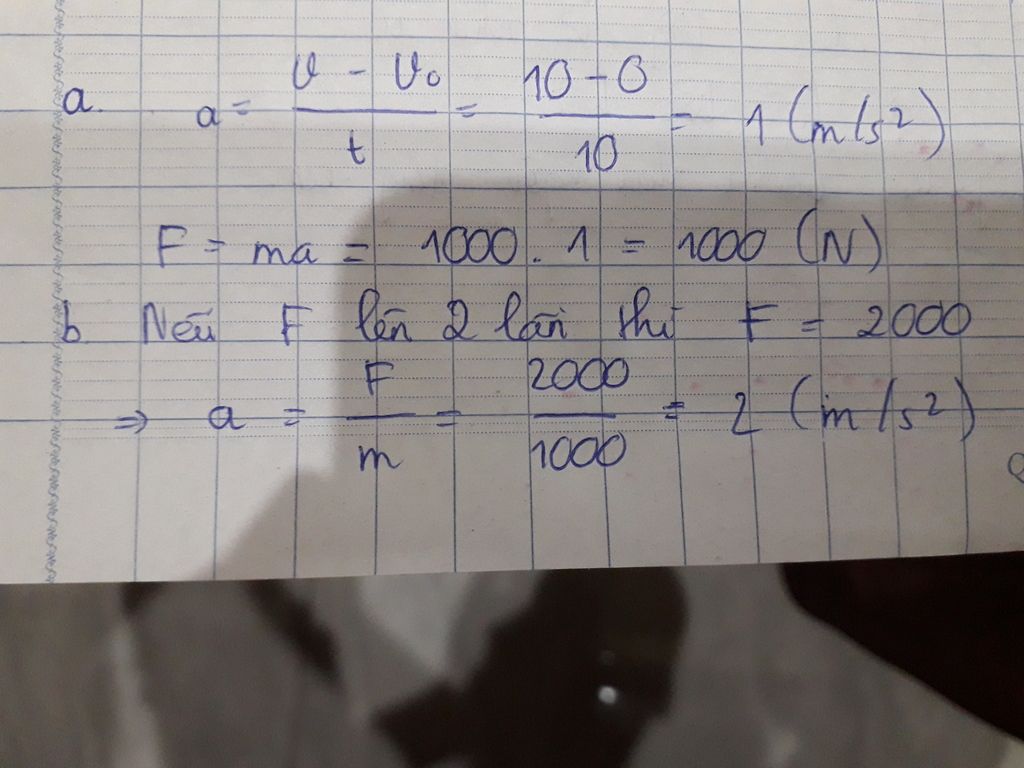 a. a = (v - v₀)/t = (10 - 0)/10 = 1 (m/s²)
F = ma = 1000 . 1 = 1000 (N)
b Nếu F lên 2 lần thì F = 2000
⇒ a = F/m = 2000/1000 = 2 (m/s²)